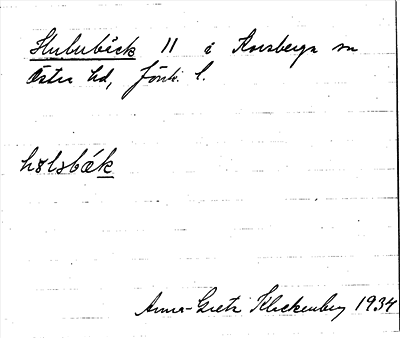 Hulubäck 11 i Korsberga sn
Östra hd, Jönk. l.
hɵlsbæ´k
Anna-Greta Klickenberg 1934